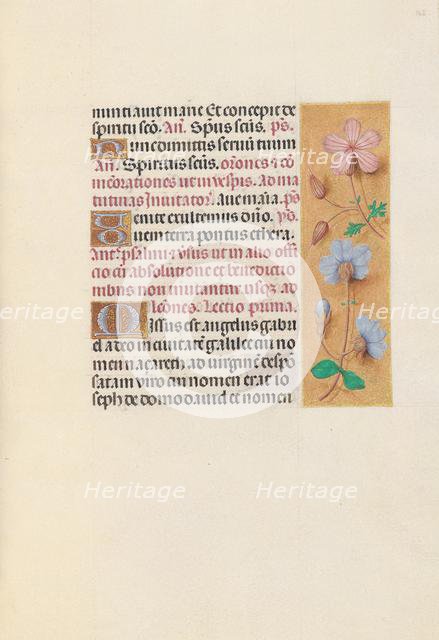 nuntiavit marie Et concepit de
spiritu scō. Añ. Sp̄us scūs. ps.
Nunc dimittis servū tuum
Añ. Spiritus scūs. orōnes ⁊ cō
memorationes ut in vesp̄is. Ad ma
tutinas Invitator̄. Ave maria. ps
Venite exultemus dño. ps.
Quem terra pontus ethera.
Ant̄e psalmi ⁊ v̄sus ut in alio offi
cio cū absolutione et benedictio
nibus non mutantur. usq̄ ad
lcōnes. Lectio prima.
Missus est angelus gabri
el a deo in civitatē galilee cui no
men nazareth. ad virginē despō
satam viro cui nomen erat io
seph de domo david et nomen
Heritage
Heritage
Heritage
Heritage
Heritage
Heritage